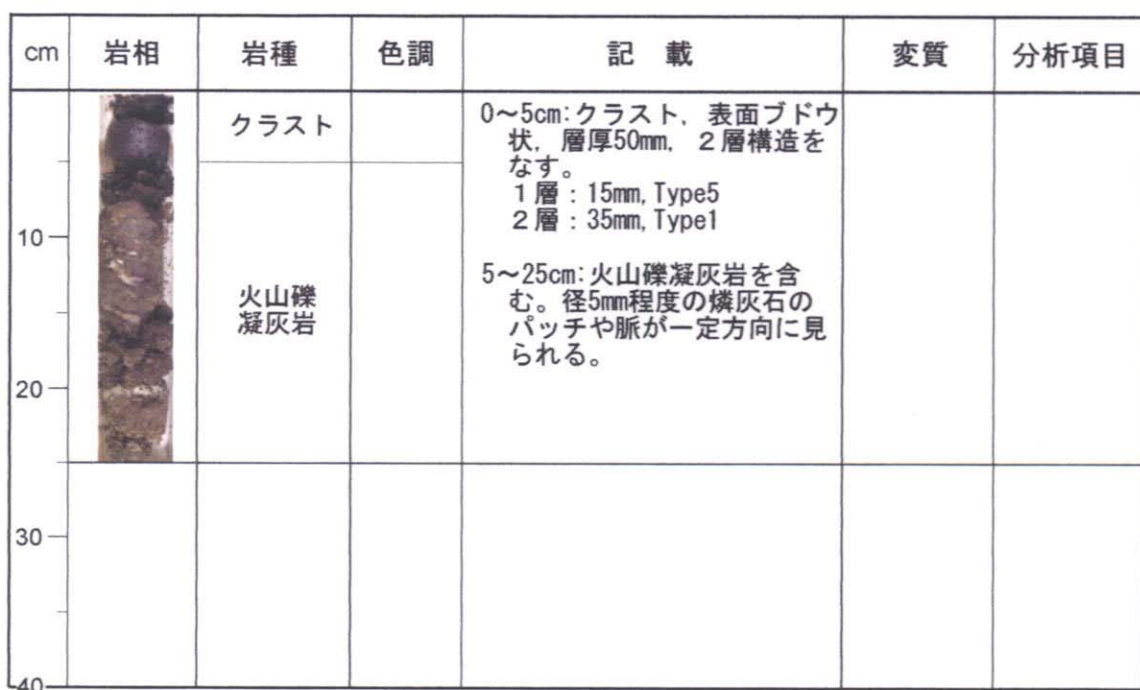 cm 岩相 岩種 色調 記 載 変質 分析項目
クラスト
0～5cm:クラスト，表面ブドウ
状，層厚50mm，２層構造を
なす。
１層：15mm,Type5
２層：35mm,Type1
10
火山礫
凝灰岩
5～25cm:火山礫凝灰岩を含
む。径5mm程度の燐灰石の
パッチや脈が一定方向に見
られる。
20
30
40